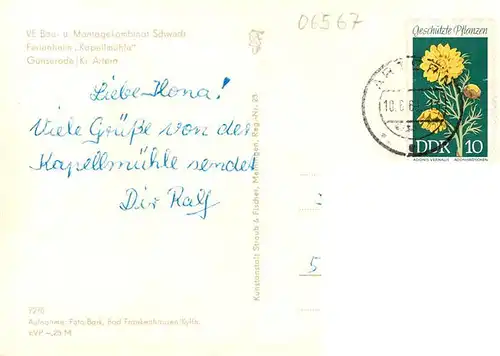 VE Bau- u. Montagekombinat Schwedt
Ferienheim „Kapellmühle"
Günserode/Kr. Artern
06567
Liebe Ilona!
Viele Grüße von der
Kapellmühle sendet
Dir Ralf
Kunstanstalt Straub & Fischer, Meiningen, Reg.-Nr. 25
5
Geschützte Pflanzen
DDR 10
10.6.6
1970
Aufnahme: Foto Bark, Bad Frankenhausen/Kyffh.
EVP -,20 M